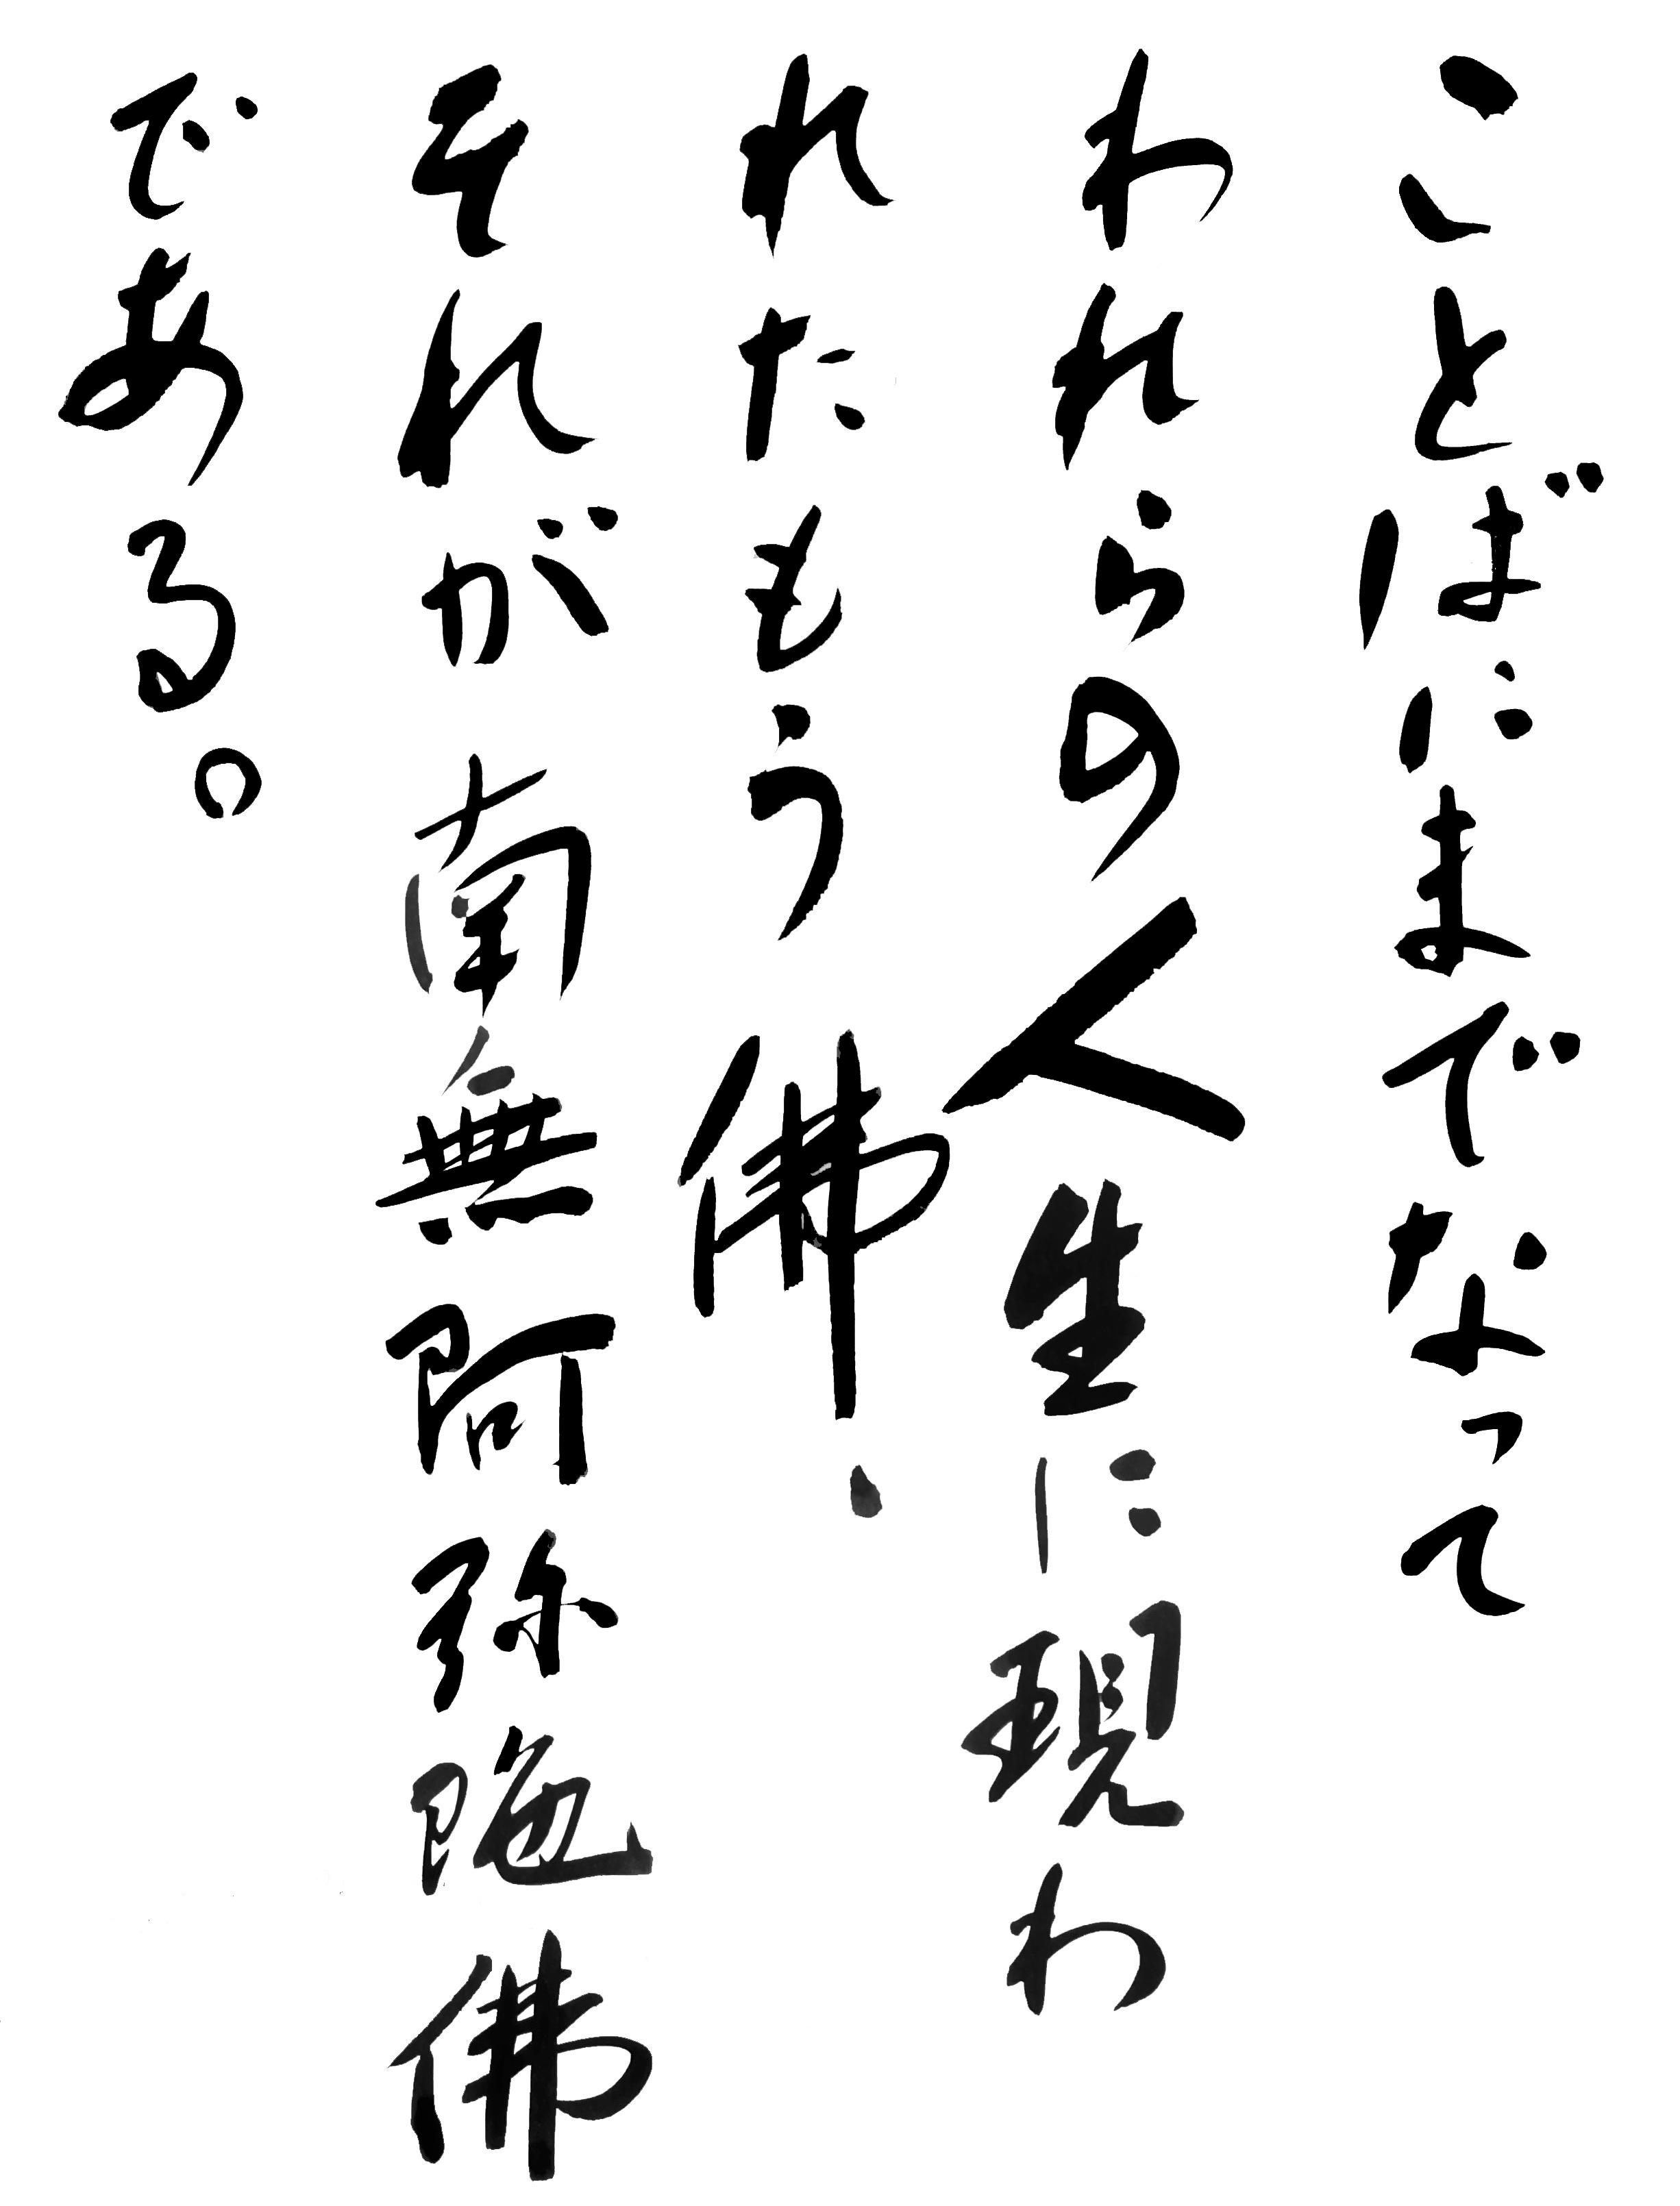 ことばにまでなって
われらの人生に現わ
れたもう佛、
それが南無阿弥陀佛
である。